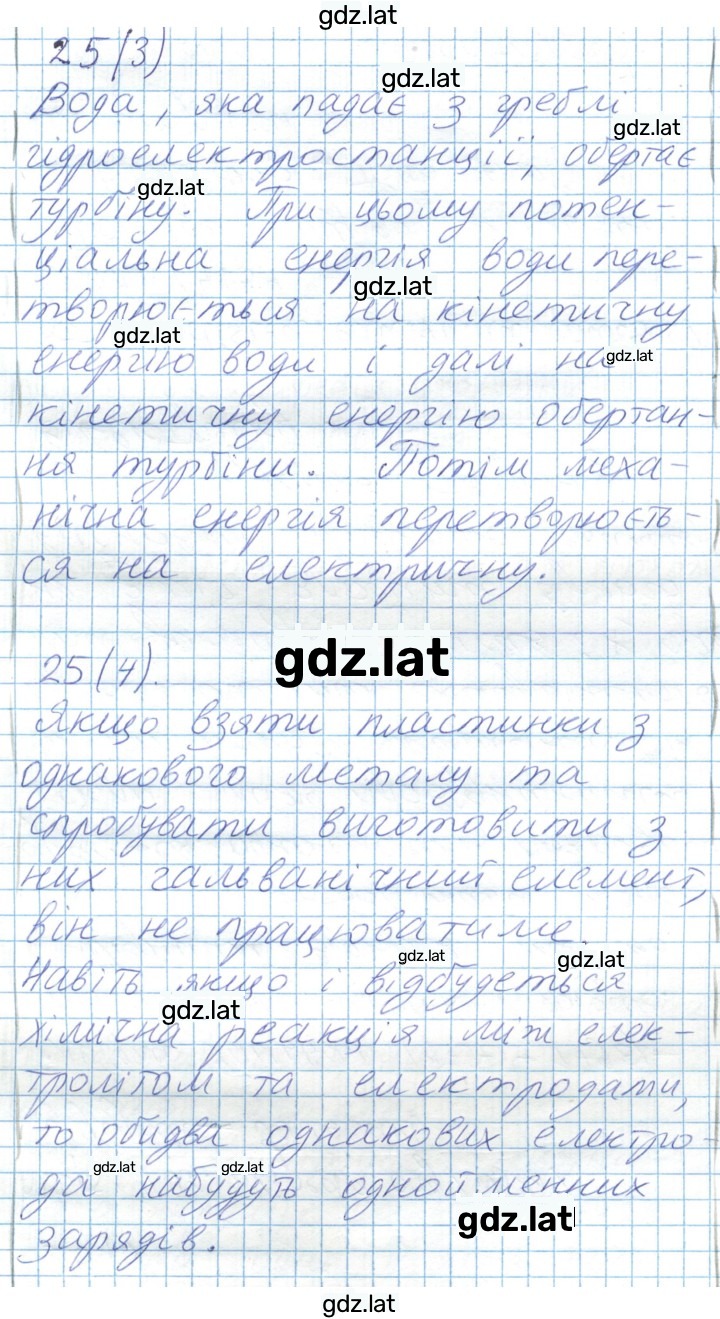 gdz.lat
25(3)
gdz.lat
Вода, яка падає з греблі
gdz.lat
гідроелектростанції, обертає
gdz.lat
турбіну. При цьому потен-
ціальна енергія води пере-
gdz.lat
творюється на кінетичну
gdz.lat
енергію води і далі на
gdz.lat
кінетичну енергію обертан-
ня турбіни. Потім меха-
нічна енергія перетворюєть-
ся на електричну.
gdz.lat
25(4).
Якщо взяти пластинки з
однакового металу та
спробувати виготовити з
них гальванічний елемент,
він не працюватиме.
gdz.lat
gdz.lat
Навіть якщо і відбудеться
gdz.lat
хімічна реакція між елек-
тролітом та електродати,
то обидва однакових електро-
gdz.lat
gdz.lat
да набудуть однойменних
gdz.lat
зарядів.
gdz.lat